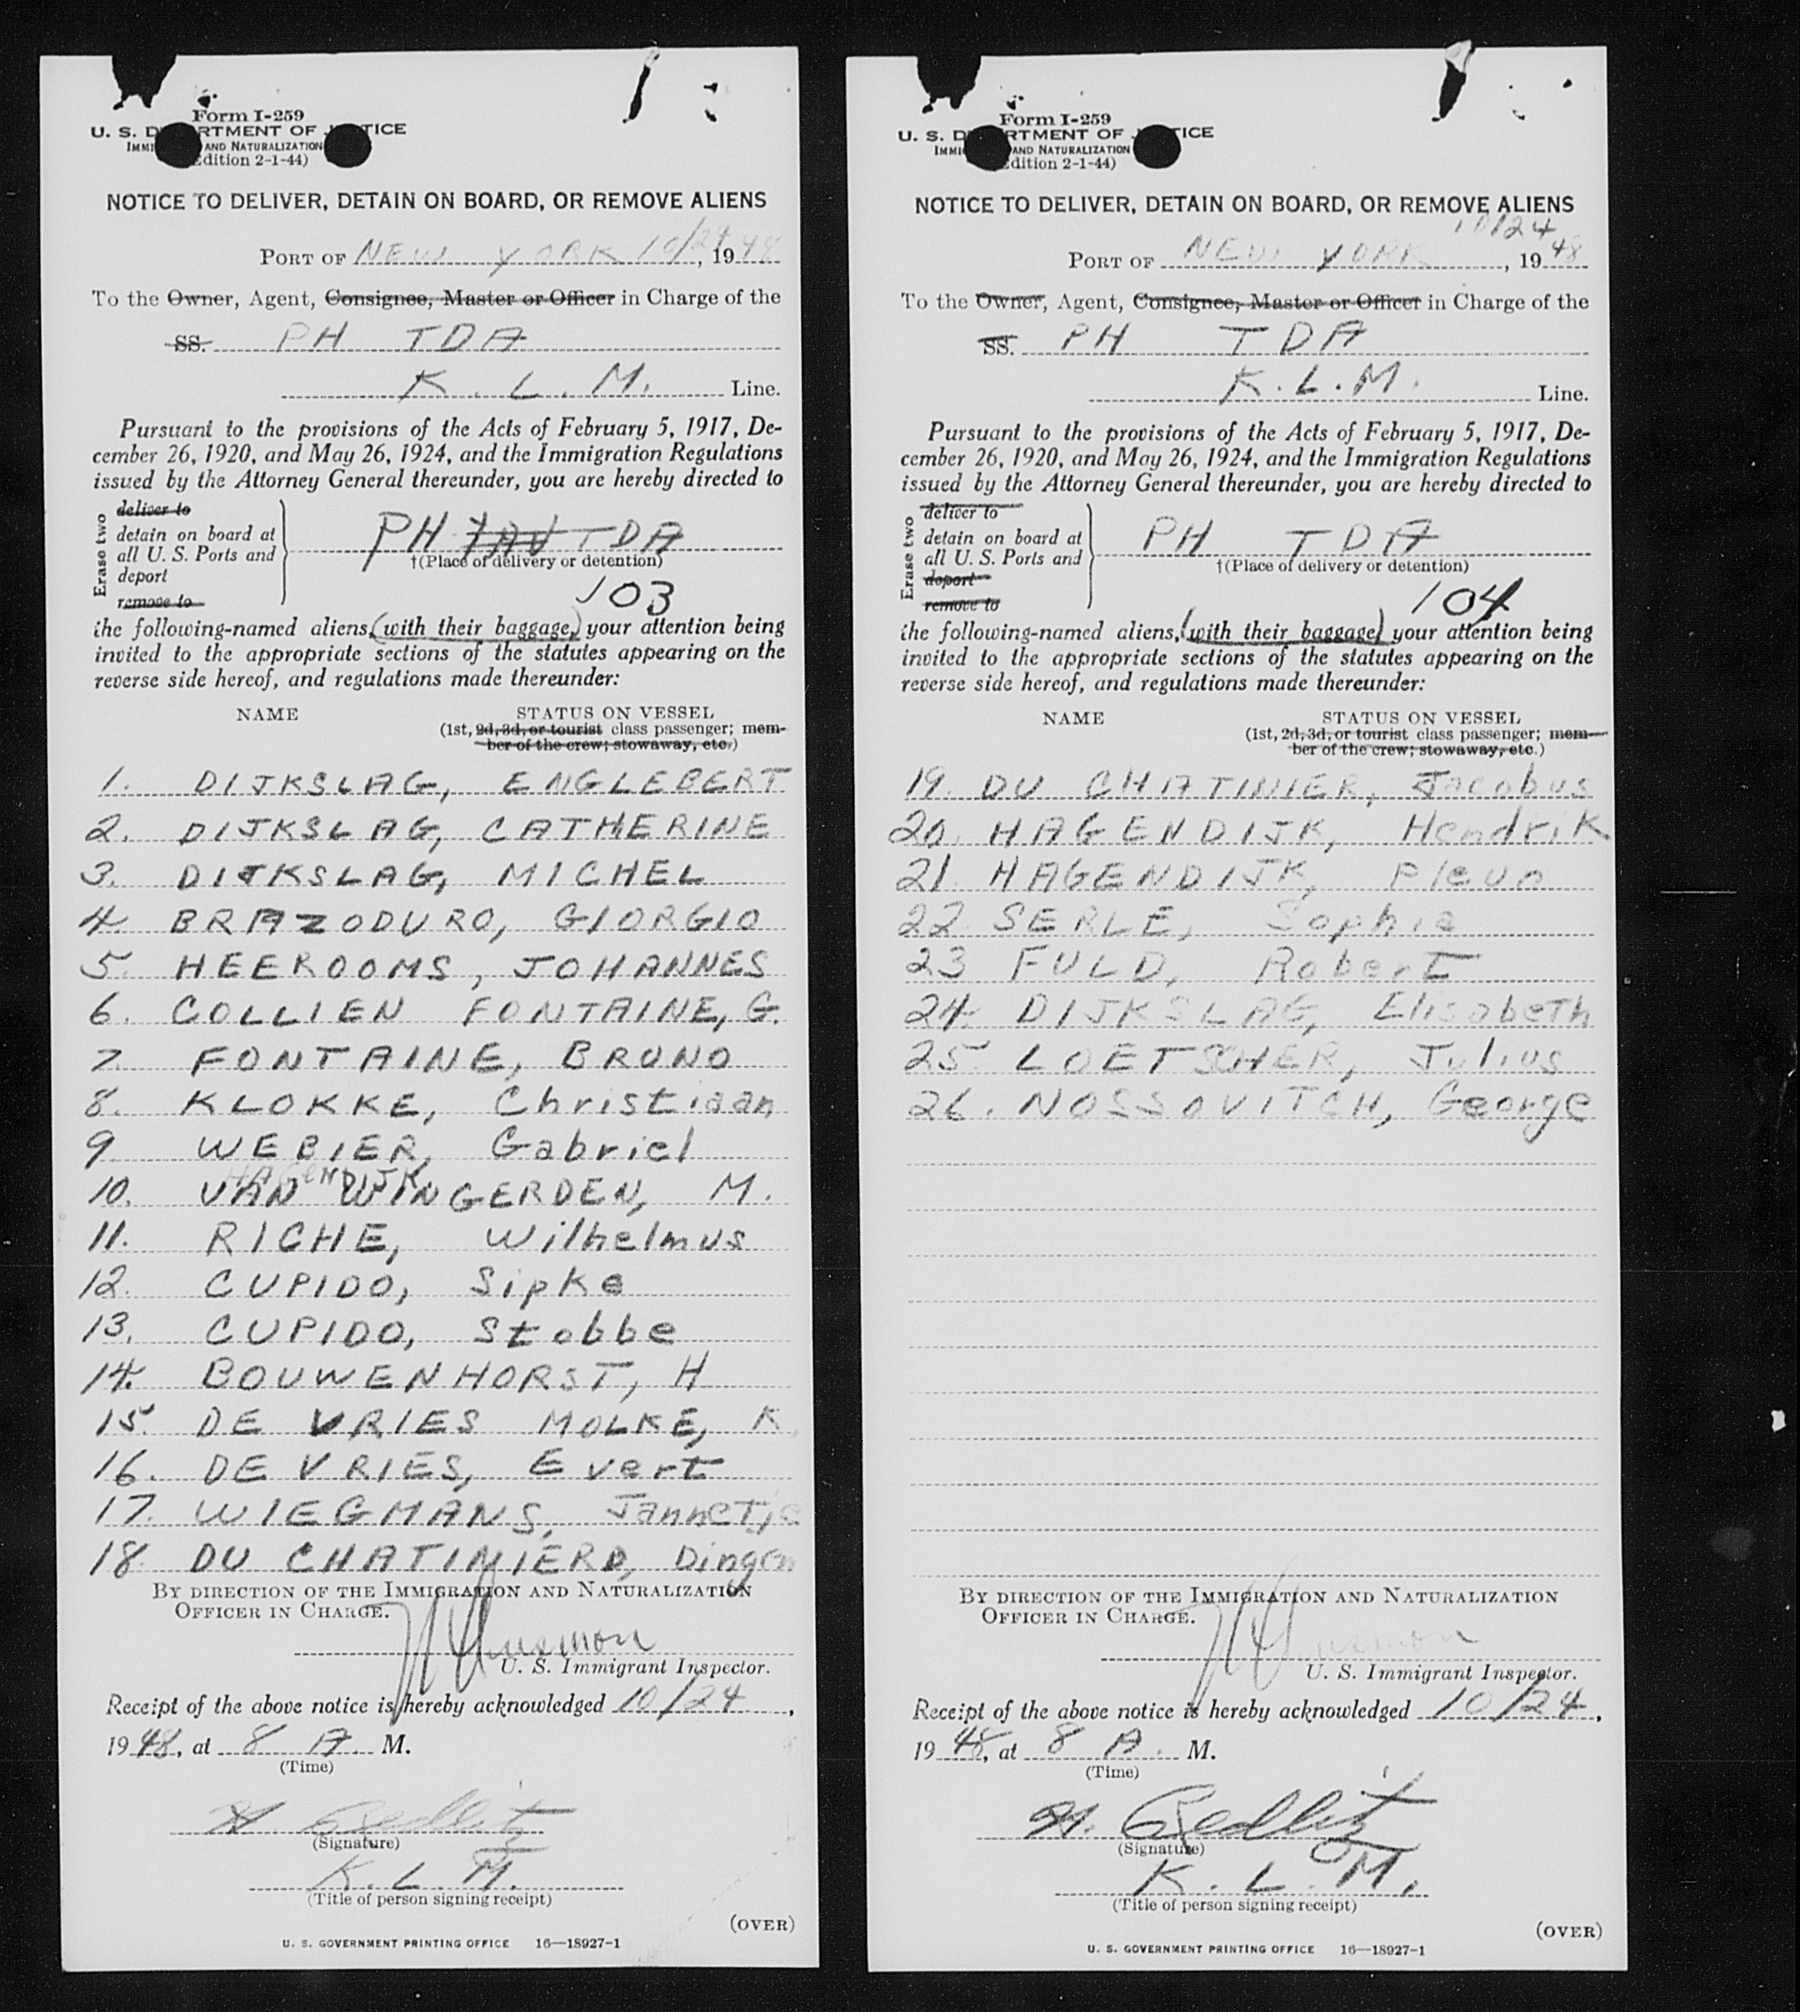 Form I-259
U. S. D RTMENT OF J TICE
IMMI AND NATURALIZATION
dition 2-1-44)
NOTICE TO DELIVER, DETAIN ON BOARD, OR REMOVE ALIENS
PORT OF NEW YORK 10/24, 1948
To the Owner, Agent, Consignee, Master or Officer in Charge of the
SS. PH TDA
K. L. M. Line.
Pursuant to the provisions of the Acts of February 5, 1917, De-
cember 26, 1920, and May 26, 1924, and the Immigration Regulations
issued by the Attorney General thereunder, you are hereby directed to
Erase two
deliver to
detain on board at
all U. S. Ports and
deport
remove to
PH TDA
†(Place of delivery or detention)
103
the following-named aliens, (with their baggage,) your attention being
invited to the appropriate sections of the statutes appearing on the
reverse side hereof, and regulations made thereunder:
NAME STATUS ON VESSEL
(1st, 2d, 3d, or tourist class passenger; mem-
ber of the crew; stowaway, etc.)
1. DIJKSLAG, ENGLEBERT
2. DIJKSLAG, CATHERINE
3. DIJKSLAG, MICHEL
4 BRAZODURO, GIORGIO
5. HEEROOMS, JOHANNES
6. COLLIEN FONTAINE, G.
7. FONTAINE, BRUNO
8. KLOKKE, Christiaan
9 WEBIER, Gabriel
HAGENDIJK
10. VAN WINGERDEN, M.
11. RICHE, Wilhelmus
12. CUPIDO, Sipke
13. CUPIDO, Stobbe
14. BOUWENHORST, H
15. DE VRIES MOLKE, K
16. DE VRIES, Evert
17. WIEGMANS, Jannetje
18. DU CHATINIERD, Dingen
BY DIRECTION OF THE IMMIGRATION AND NATURALIZATION
OFFICER IN CHARGE.
U. S. Immigrant Inspector.
Receipt of the above notice is hereby acknowledged 10/24,
1948, at 8 A. M.
(Time)
H. Redlitz
(Signature)
K. L. M.
(Title of person signing receipt)
(OVER)
U. S. GOVERNMENT PRINTING OFFICE 16—18927-1
Form I-259
U. S. D RTMENT OF J ICE
IMMI AND NATURALIZATION
dition 2-1-44)
NOTICE TO DELIVER, DETAIN ON BOARD, OR REMOVE ALIENS
PORT OF NEW YORK 10/24, 1948
To the Owner, Agent, Consignee, Master or Officer in Charge of the
SS. PH TDA
K. L. M. Line.
Pursuant to the provisions of the Acts of February 5, 1917, De-
cember 26, 1920, and May 26, 1924, and the Immigration Regulations
issued by the Attorney General thereunder, you are hereby directed to
Erase two
deliver to
detain on board at
all U. S. Ports and
deport
remove to
PH TDA
†(Place of delivery or detention)
104
the following-named aliens, (with their baggage) your attention being
invited to the appropriate sections of the statutes appearing on the
reverse side hereof, and regulations made thereunder:
NAME STATUS ON VESSEL
(1st, 2d, 3d, or tourist class passenger; mem-
ber of the crew; stowaway, etc.)
19. DU CHATINIER, Jacobus
20. HAGENDIJK, Hendrik
21. HAGENDIJK, Pleun
22. SERLE, Sophie
23 FULD, Robert
24. DIJKSLAG, Elisabeth
25 LOETSCHER, Julius
26. NOSSOVITCH, George
BY DIRECTION OF THE IMMIGRATION AND NATURALIZATION
OFFICER IN CHARGE.
U. S. Immigrant Inspector.
Receipt of the above notice is hereby acknowledged 10/24,
1948, at 8 A. M.
(Time)
H. Redlitz
(Signature)
K. L. M.
(Title of person signing receipt)
(OVER)
U. S. GOVERNMENT PRINTING OFFICE 16—18927-1